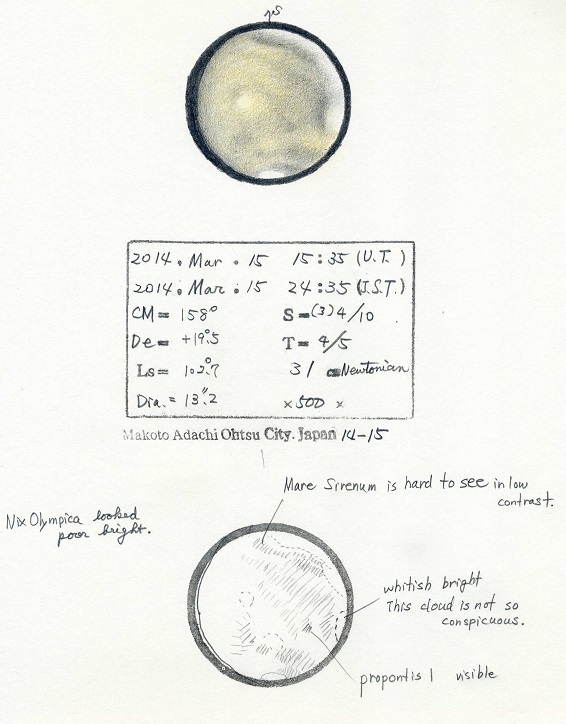 2014. Mar. 15 15:35 (U.T.)
2014. Mar. 15 24:35 (J.S.T.)
CM= 158° S=(3)4/10
De= +19°.5 T= 4/5
Ls= 102°.7 31 cm Newtonian
Dia.= 13".2 ×500 ×
Makoto Adachi Ohtsu City. Japan 14-15
Mare Sirenum is hard to see in low
contrast.
Nix Olympica looked
poor bright.
whitish bright
This cloud is not so
conspicuous.
propontis I visible